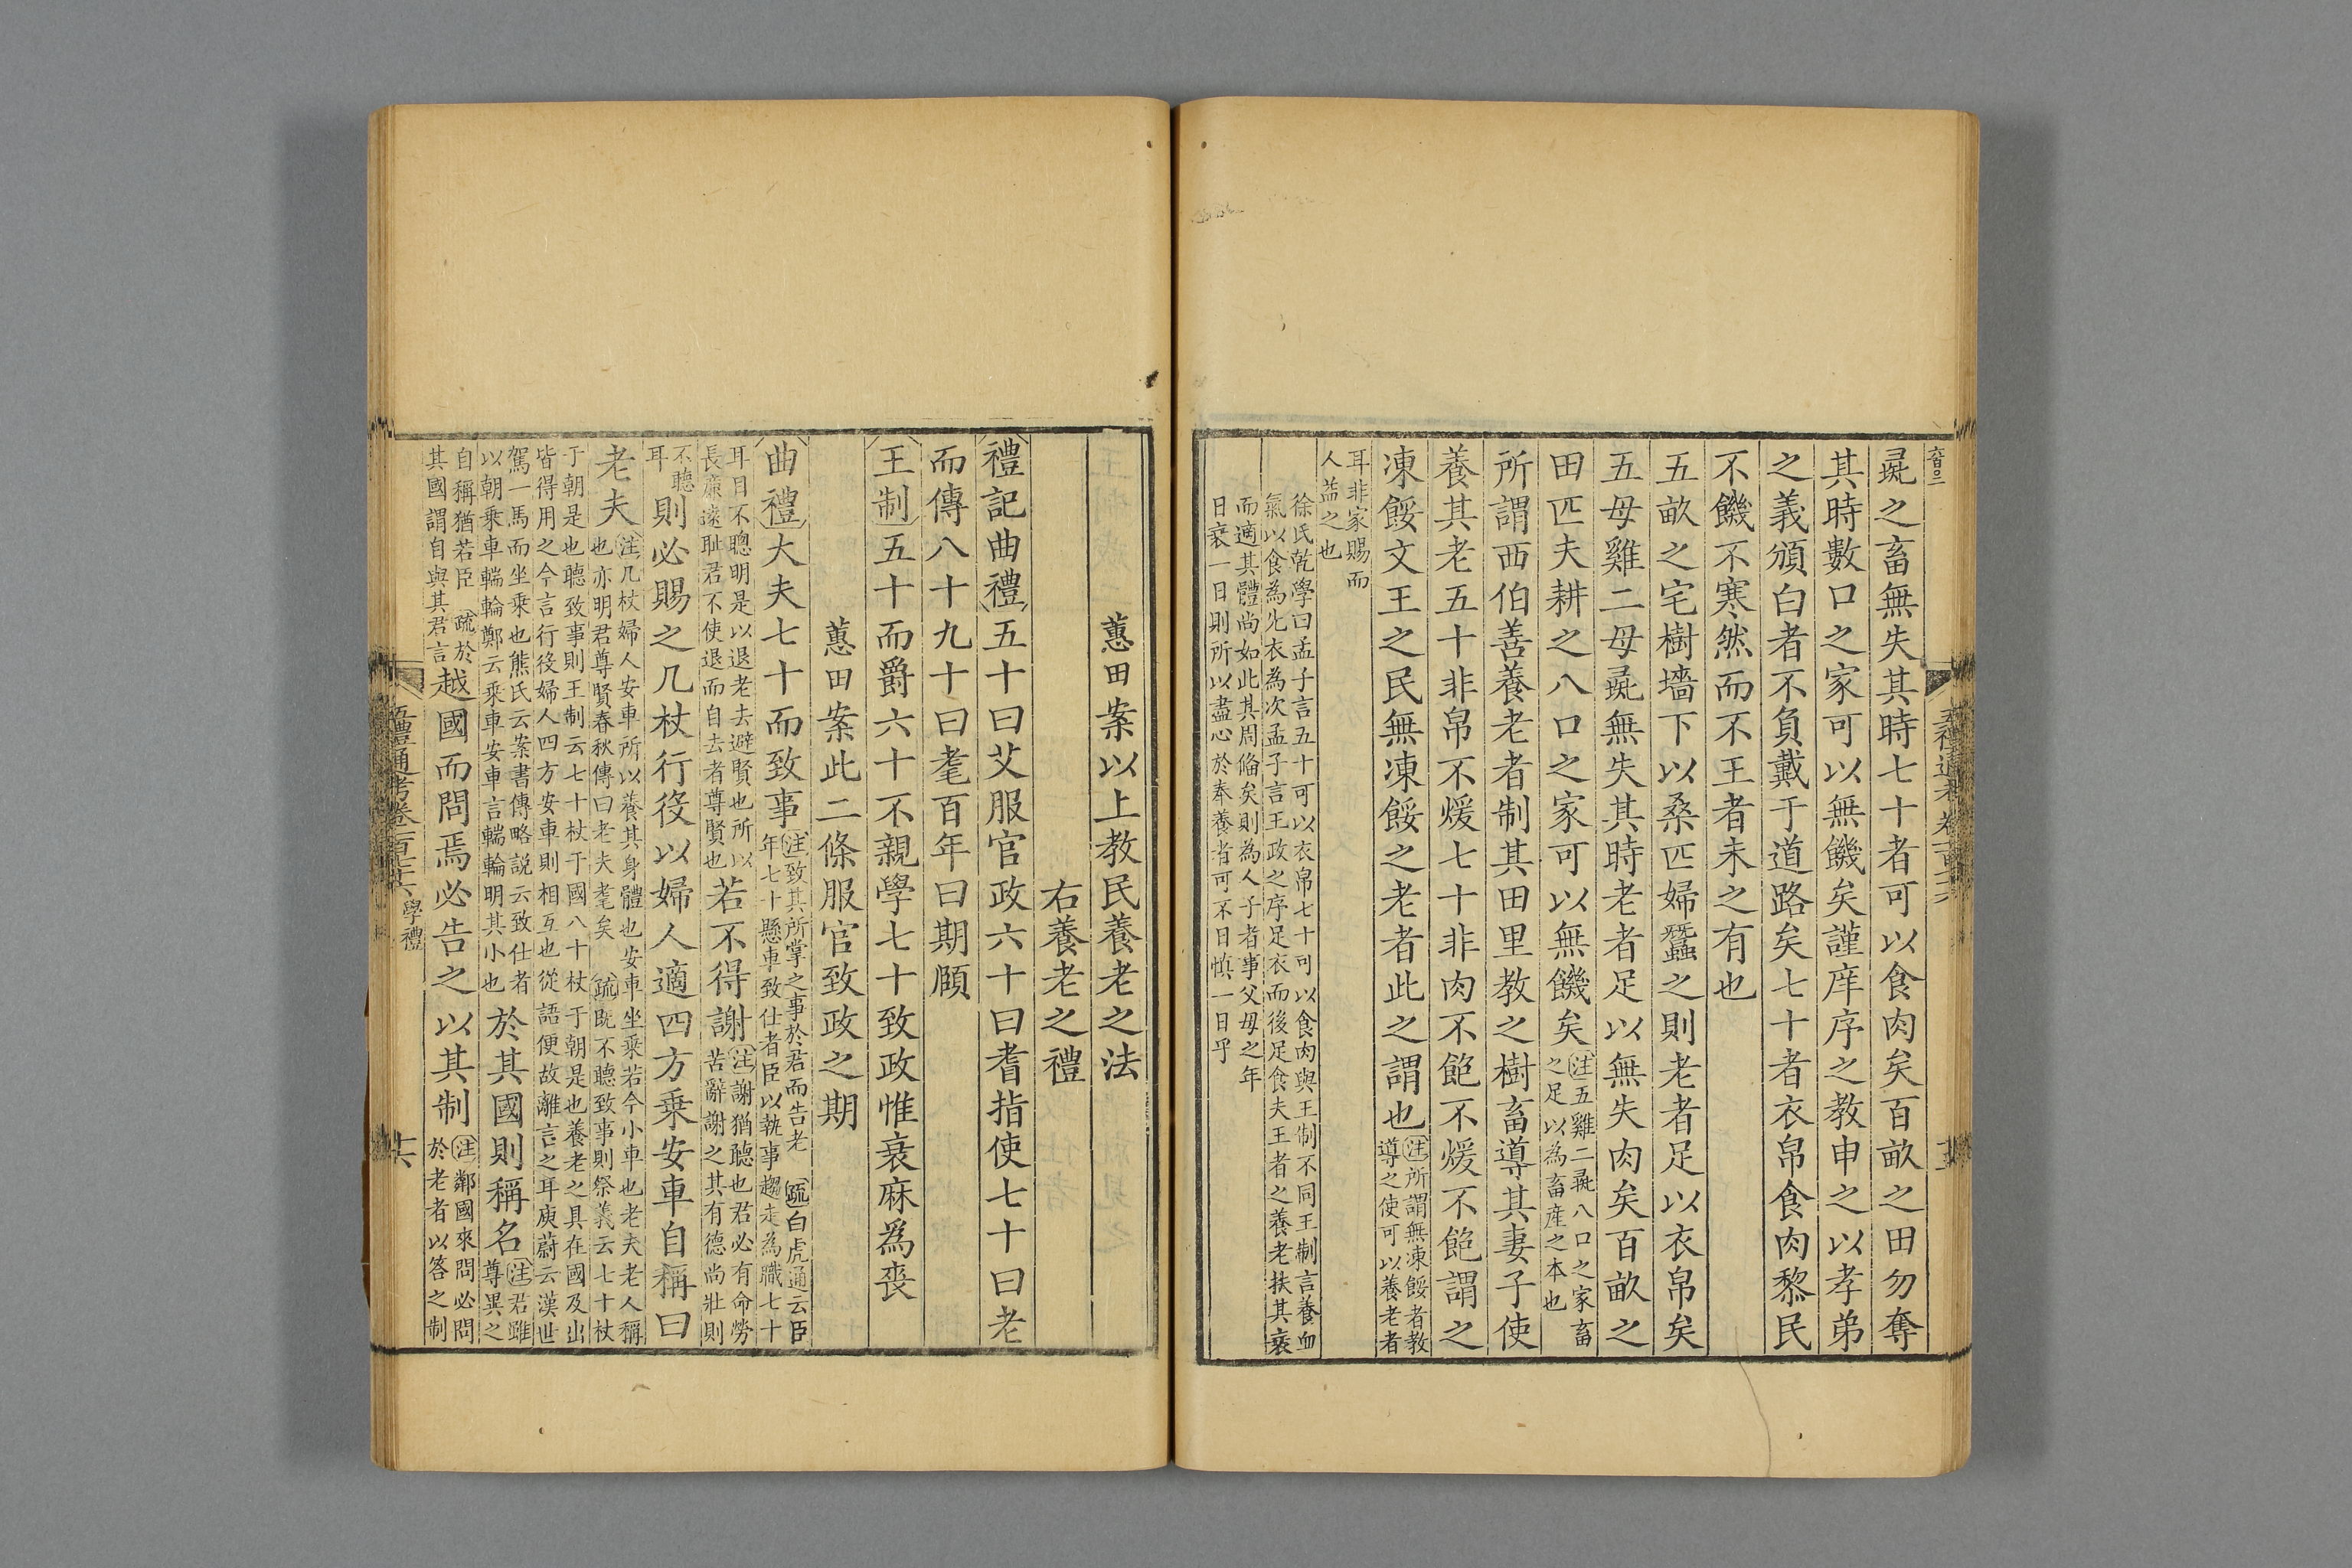 彘之畜無失其時七十者可以食肉矣百畝之田勿奪
其時數口之家可以無饑矣謹庠序之教申之以孝弟
之義頒白者不負戴于道路矣七十者衣帛食肉黎民
不饑不寒然而不王者未之有也
五畝之宅樹墻下以桑匹婦蠶之則老者足以衣帛矣
五母雞二母彘無失其時老者足以無失肉矣百畝之
田匹夫耕之八口之家可以無饑矣注五雞二彘八口之家畜
之足以為畜產之本也
所謂西伯善養老者制其田里教之樹畜導其妻子使
養其老五十非帛不煖七十非肉不飽不煖不飽謂之
凍餒文王之民無凍餒之老者此之謂也注所謂無凍餒者教
導之使可以養老者
耳非家賜而
人益之也
徐氏乾學曰孟子言五十可以衣帛七十可以食肉與王制不同王制言養血
氣以食為先衣為次孟子言王政之序足衣而後足食夫王者之養老扶其衰
而適其體尚如此其周俻矣則為人子者事父母之年
日衰一日則所以盡心於奉養者可不日慎一日乎
蕙田案以上教民養老之法
右養老之禮
禮記曲禮五十曰艾服官政六十曰耆指使七十曰老
而傳八十九十曰耄百年曰期頤
王制五十而爵六十不親學七十致政惟衰麻為喪
蕙田案此二條服官致政之期
曲禮大夫七十而致事注致其所掌之事於君而告老 疏白虎通云臣
年七十懸車致仕者臣以執事趨走為職七十
耳目不聰明是以退老去避賢也所以
長廉遠恥君不使退而自去者尊賢也若不得謝注謝猶聽也君必有命勞
苦辭謝之其有德尚壯則
不聽
耳則必賜之几杖行役以婦人適四方乘安車自稱曰
老夫注几杖婦人安車所以養其身體也安車坐乘若今小車也老夫老人稱
也亦明君尊賢春秋傳曰老夫耄矣 疏既不聽致事則祭義云七十杖
于朝是也聽致事則王制云七十杖于國八十杖于朝是也養老之具在國及出
皆得用之今言行役婦人四方安車則相互也從語便故離言之耳庾蔚云漢世
駕一馬而坐乘也熊氏云案書傳略說云致仕者
以朝乘車輲輪鄭云乘車安車言輲輪明其小也於其國則稱名注君雖
尊異之
自稱猶若臣 疏於
其國謂自與其君言越國而問焉必告之以其制注鄰國來問必問
於老者以答之制
五禮通考卷一百七十六 學禮 十六